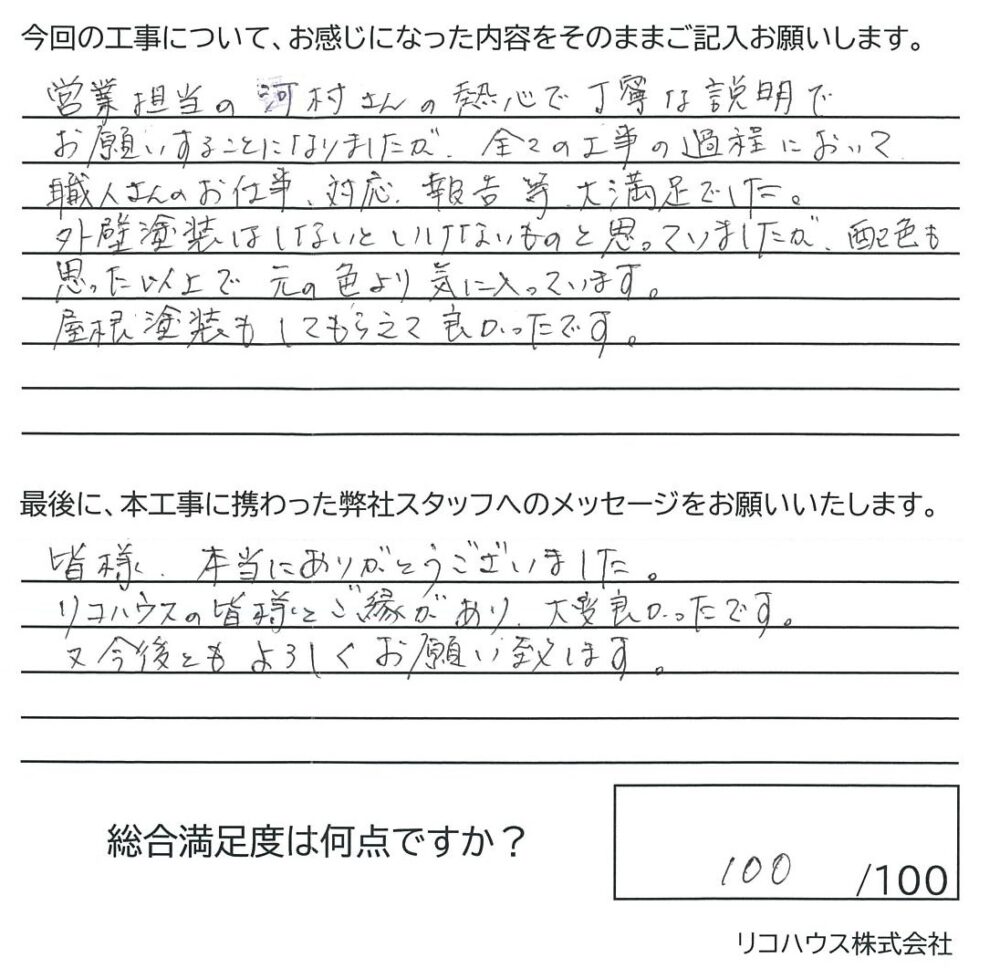 今回の工事について、お感じになった内容をそのままご記入お願いします。
営業担当の河村さんの熱心で丁寧な説明で
お願いすることになりましたが、全ての工事の過程において
職人さんのお仕事、対応、報告等、大満足でした。
外壁塗装はしないといけないものと思っていましたが、配色も
思った以上で元の色より気に入っています。
屋根塗装もしてもらえて良かったです。
最後に、本工事に携わった弊社スタッフへのメッセージをお願いいたします。
皆様、本当にありがとうございました。
リコハウスの皆様とご縁があり、大変良かったです。
又今後ともよろしくお願い致します。
総合満足度は何点ですか？
100 /100
リコハウス株式会社